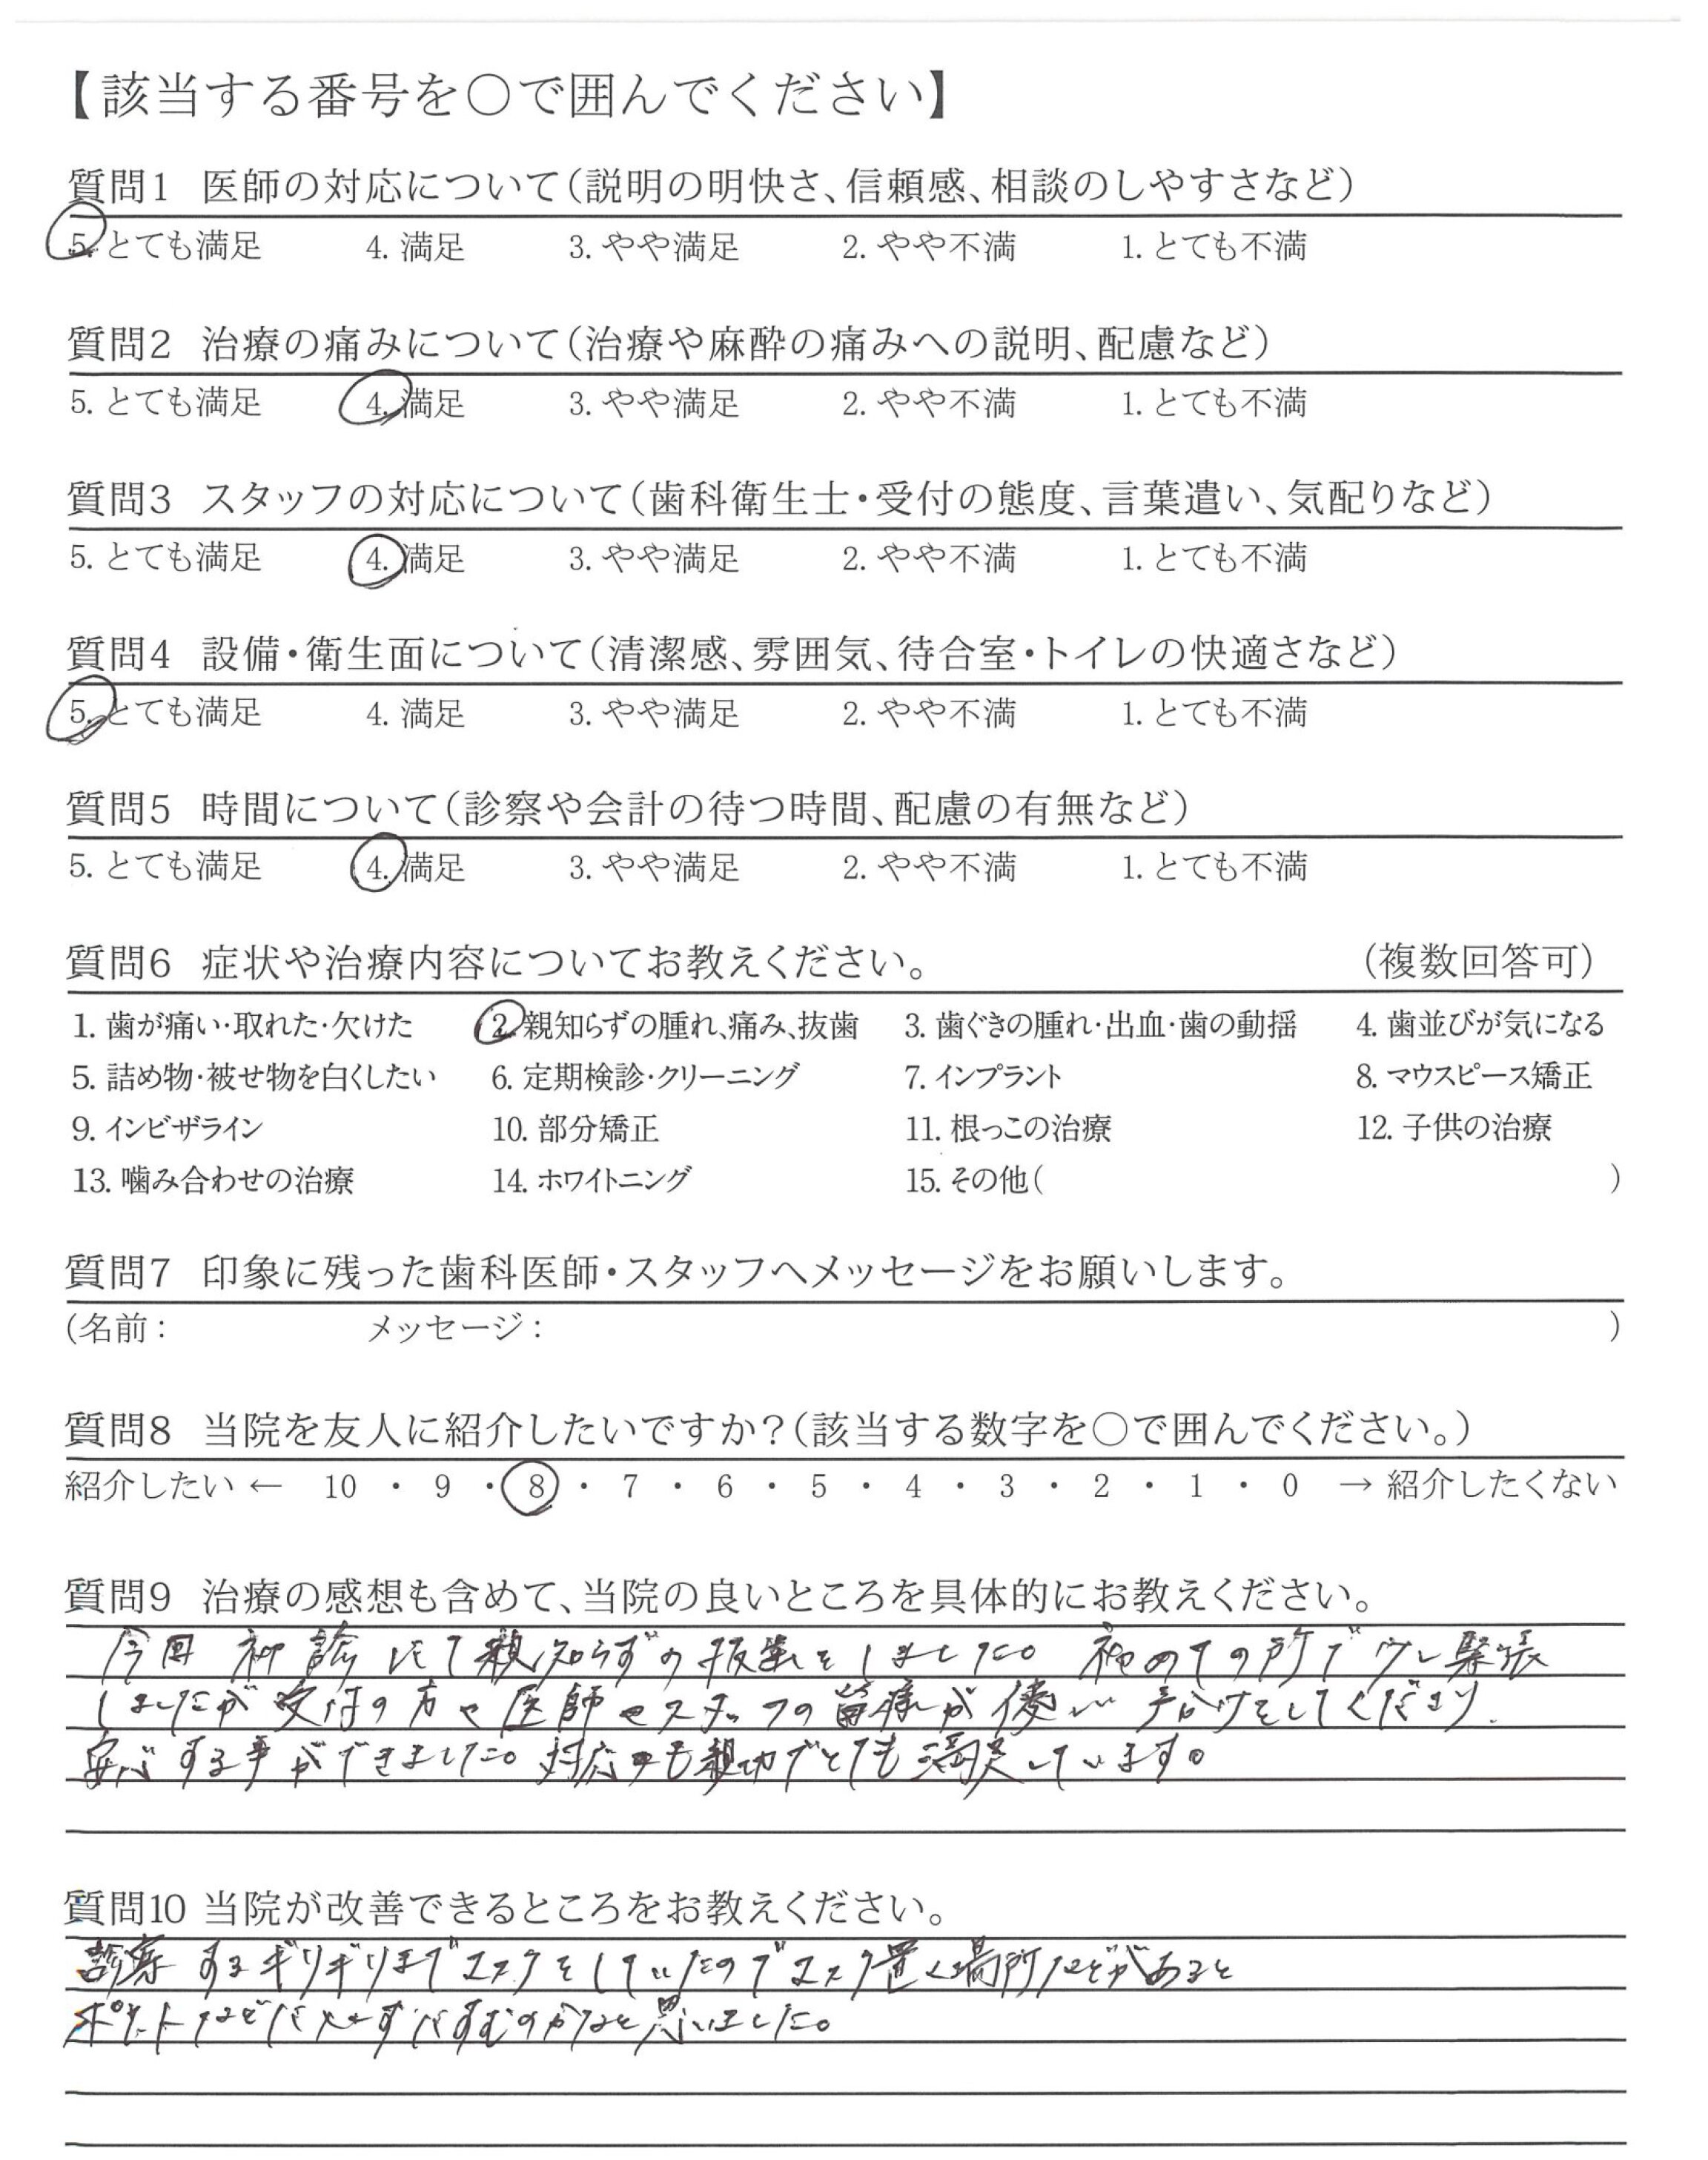 【該当する番号を○で囲んでください】
質問1 医師の対応について(説明の明快さ、信頼感、相談のしやすさなど)
5. とても満足 4. 満足 3. やや満足 2. やや不満 1. とても不満
質問2 治療の痛みについて(治療や麻酔の痛みへの説明、配慮など)
5. とても満足 4. 満足 3. やや満足 2. やや不満 1. とても不満
質問3 スタッフの対応について(歯科衛生士・受付の態度、言葉遣い、気配りなど)
5. とても満足 4. 満足 3. やや満足 2. やや不満 1. とても不満
質問4 設備・衛生面について(清潔感、雰囲気、待合室・トイレの快適さなど)
5. とても満足 4. 満足 3. やや満足 2. やや不満 1. とても不満
質問5 時間について(診察や会計の待つ時間、配慮の有無など)
5. とても満足 4. 満足 3. やや満足 2. やや不満 1. とても不満
質問6 症状や治療内容についてお教えください。 (複数回答可)
1. 歯が痛い・取れた・欠けた 2. 親知らずの腫れ、痛み、抜歯 3. 歯ぐきの腫れ・出血・歯の動揺 4. 歯並びが気になる
5. 詰め物・被せ物を白くしたい 6. 定期検診・クリーニング 7. インプラント 8. マウスピース矯正
9. インビザライン 10. 部分矯正 11. 根っこの治療 12. 子供の治療
13. 噛み合わせの治療 14. ホワイトニング 15. その他( )
質問7 印象に残った歯科医師・スタッフへメッセージをお願いします。
(名前: メッセージ: )
質問8 当院を友人に紹介したいですか?(該当する数字を○で囲んでください。)
紹介したい ← 10 ・ 9 ・ 8 ・ 7 ・ 6 ・ 5 ・ 4 ・ 3 ・ 2 ・ 1 ・ 0 → 紹介したくない
質問9 治療の感想も含めて、当院の良いところを具体的にお教えください。
今回 初診にて親知らずの抜歯をしました。初めての所で少し緊張
しましたが受付の方や医師やスタッフの皆様が優しい声かけをしてくださり、
安心する事ができました。対応も親切でとても満足しています。
質問10 当院が改善できるところをお教えください。
診療するギリギリまでマスクをしていたのでマスク置く場所などがあると
ポケットなどに すむのかなと思いました。